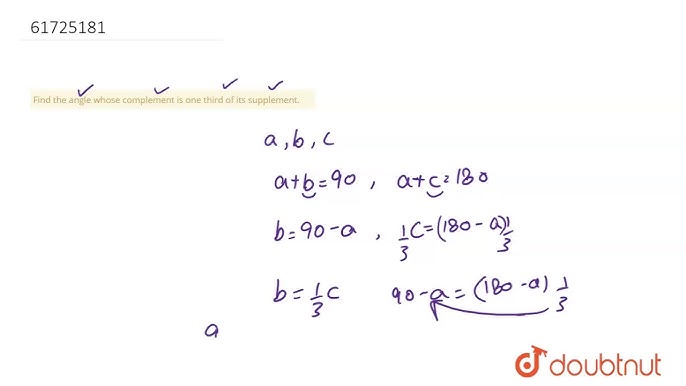 61725181
Find the angle whose complement is one third of its supplement.
a, b, c
a+b=90 , a+c=180
b=90-a , 1/3 c=(180-a) 1/3
b=1/3 c 90-a=(180-a) 1/3
a
doubtnut